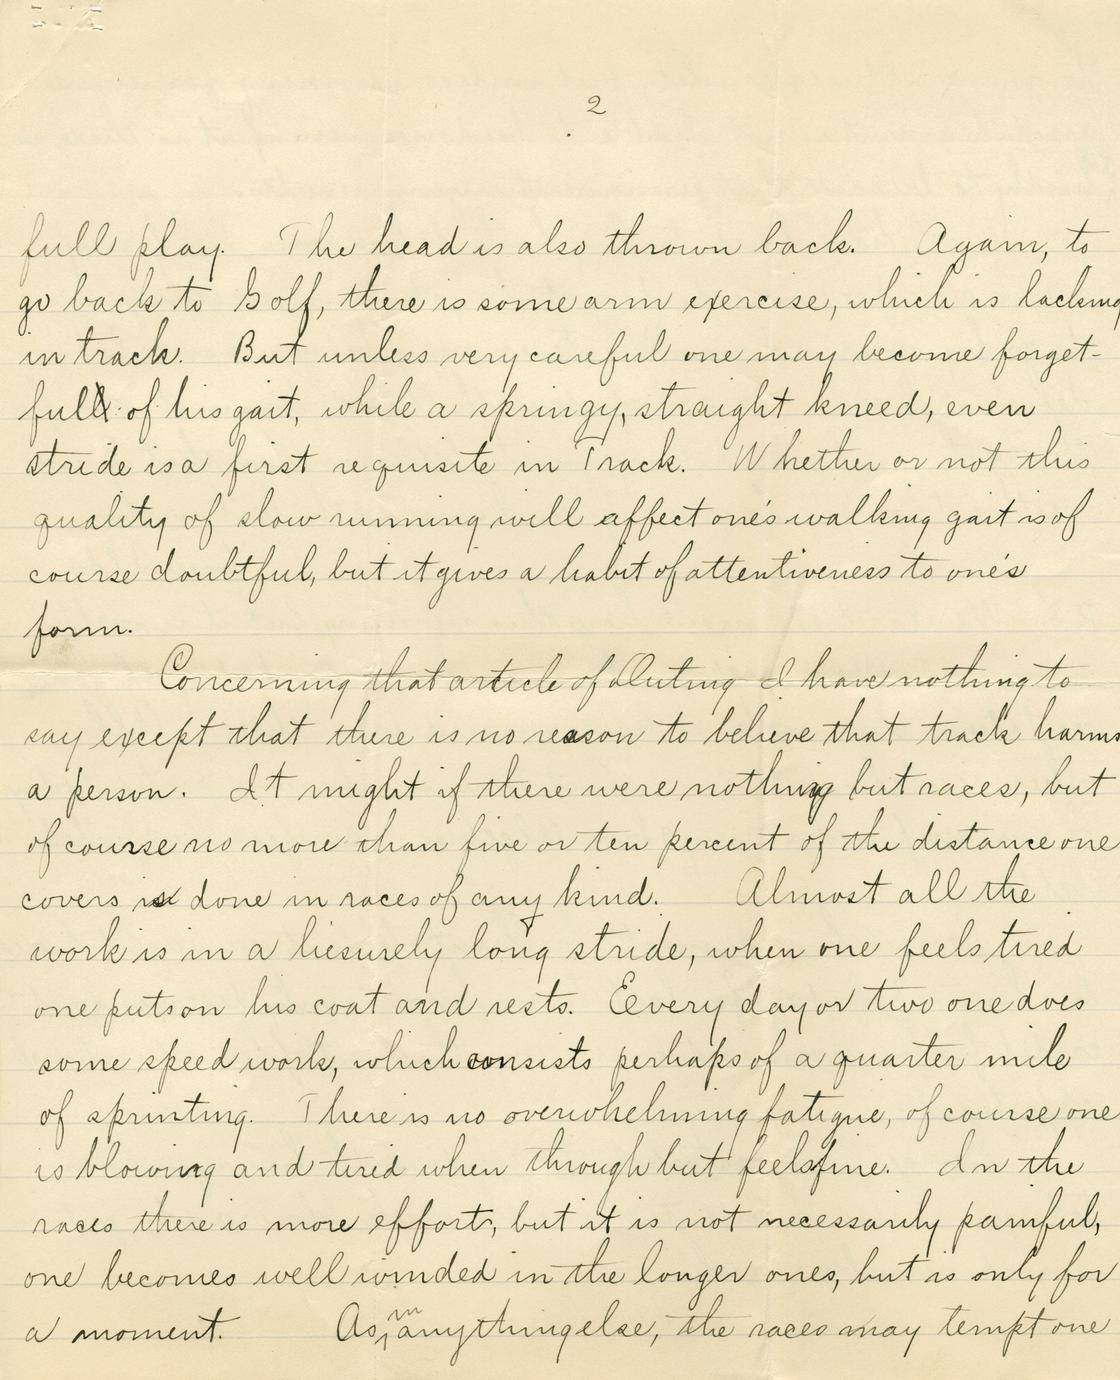 2
full play. The head is also thrown back. Again, to
go back to Golf, there is some arm exercise, which is lacking
in track. But unless very careful one may become forget-
full of his gait, while a springy, straight kneed, even
stride is a first requisite in Track. Whether or not this
quality of slow running will affect one's walking gait is of
course doubtful, but it gives a habit of attentiveness to one's
form.
Concerning that article of Outing I have nothing to
say except that there is no reason to believe that track harms
a person. It might if there were nothing but races, but
of course no more than five or ten percent of the distance one
covers is done in races of any kind. Almost all the
work is in a liesurely long stride, when one feels tired
one puts on his coat and rests. Eevery day or two one does
some speed work, which consists perhaps of a quarter mile
of sprinting. There is no overwhelming fatigue, of course one
is blowing and tired when through but feels fine. In the
races there is more effort, but it is not necessarily painful,
one becomes well winded in the longer ones, but is only for
a moment. As, in anything else, the races may tempt one